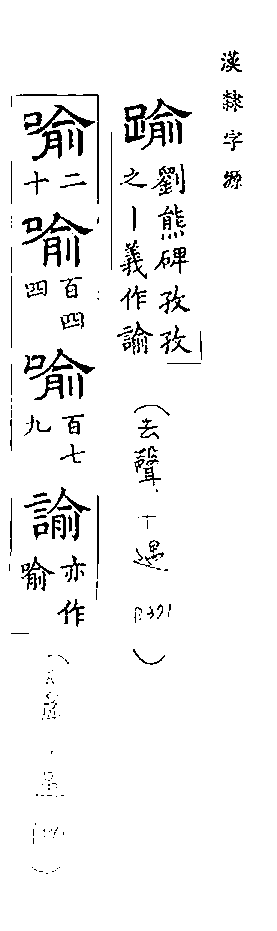 漢隸字源
踰 劉熊碑孜孜之｜義作諭
(去聲十遇 P.391)
喻 二十 喻 百四四 喻 百七九 諭 亦作喻